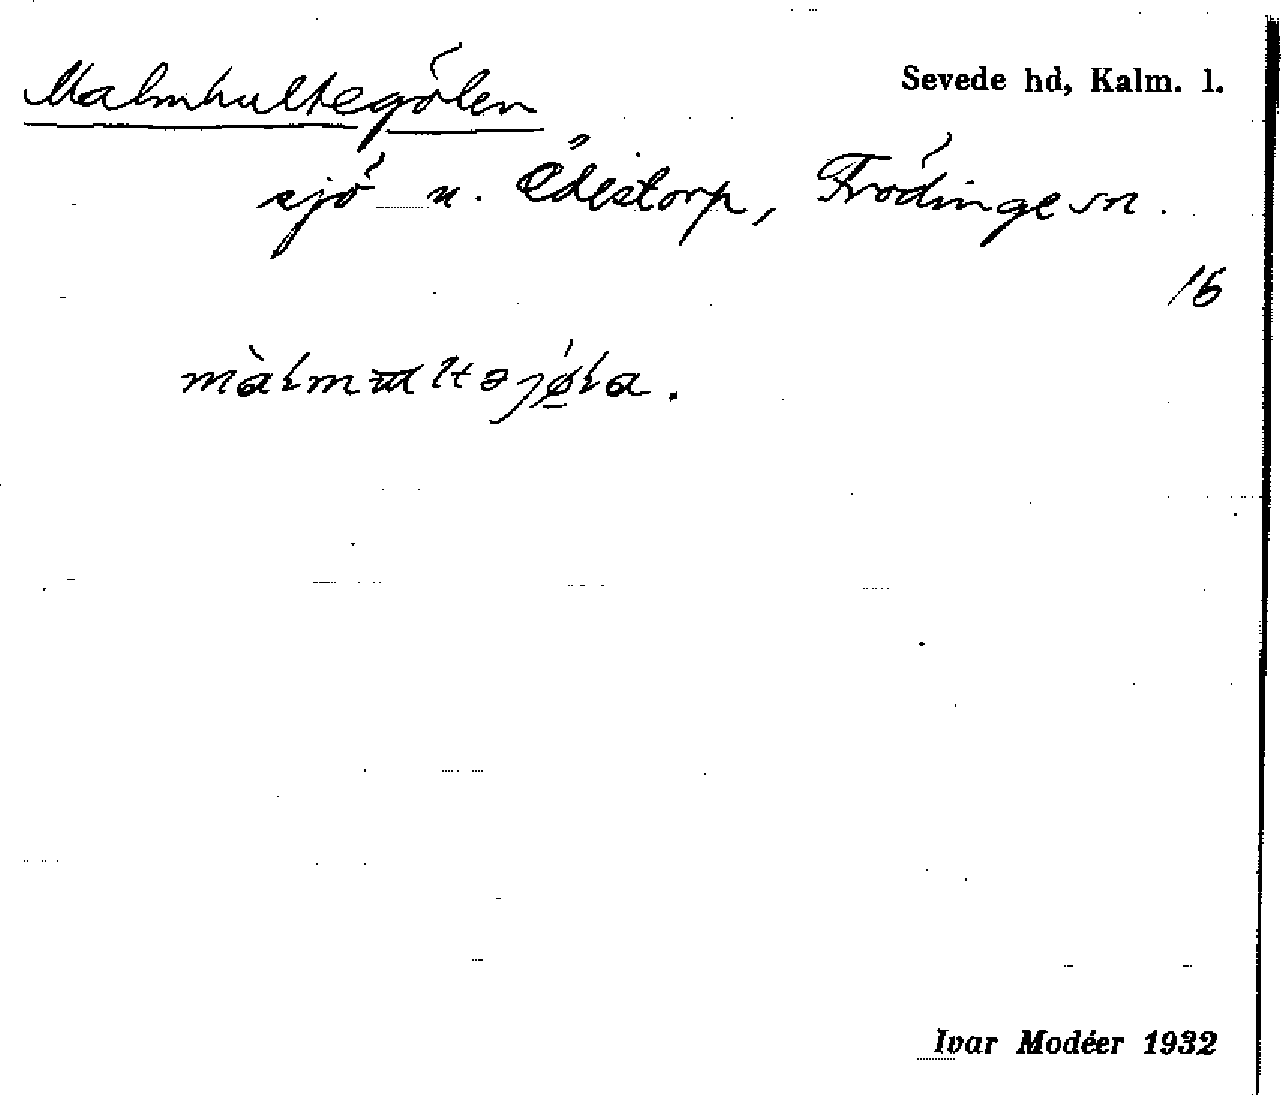 Malmhultegölen
Sevede hd, Kalm. l.
sjö n. Ödestorp, Frödinge sn.
16
Ivar Modéer 1932